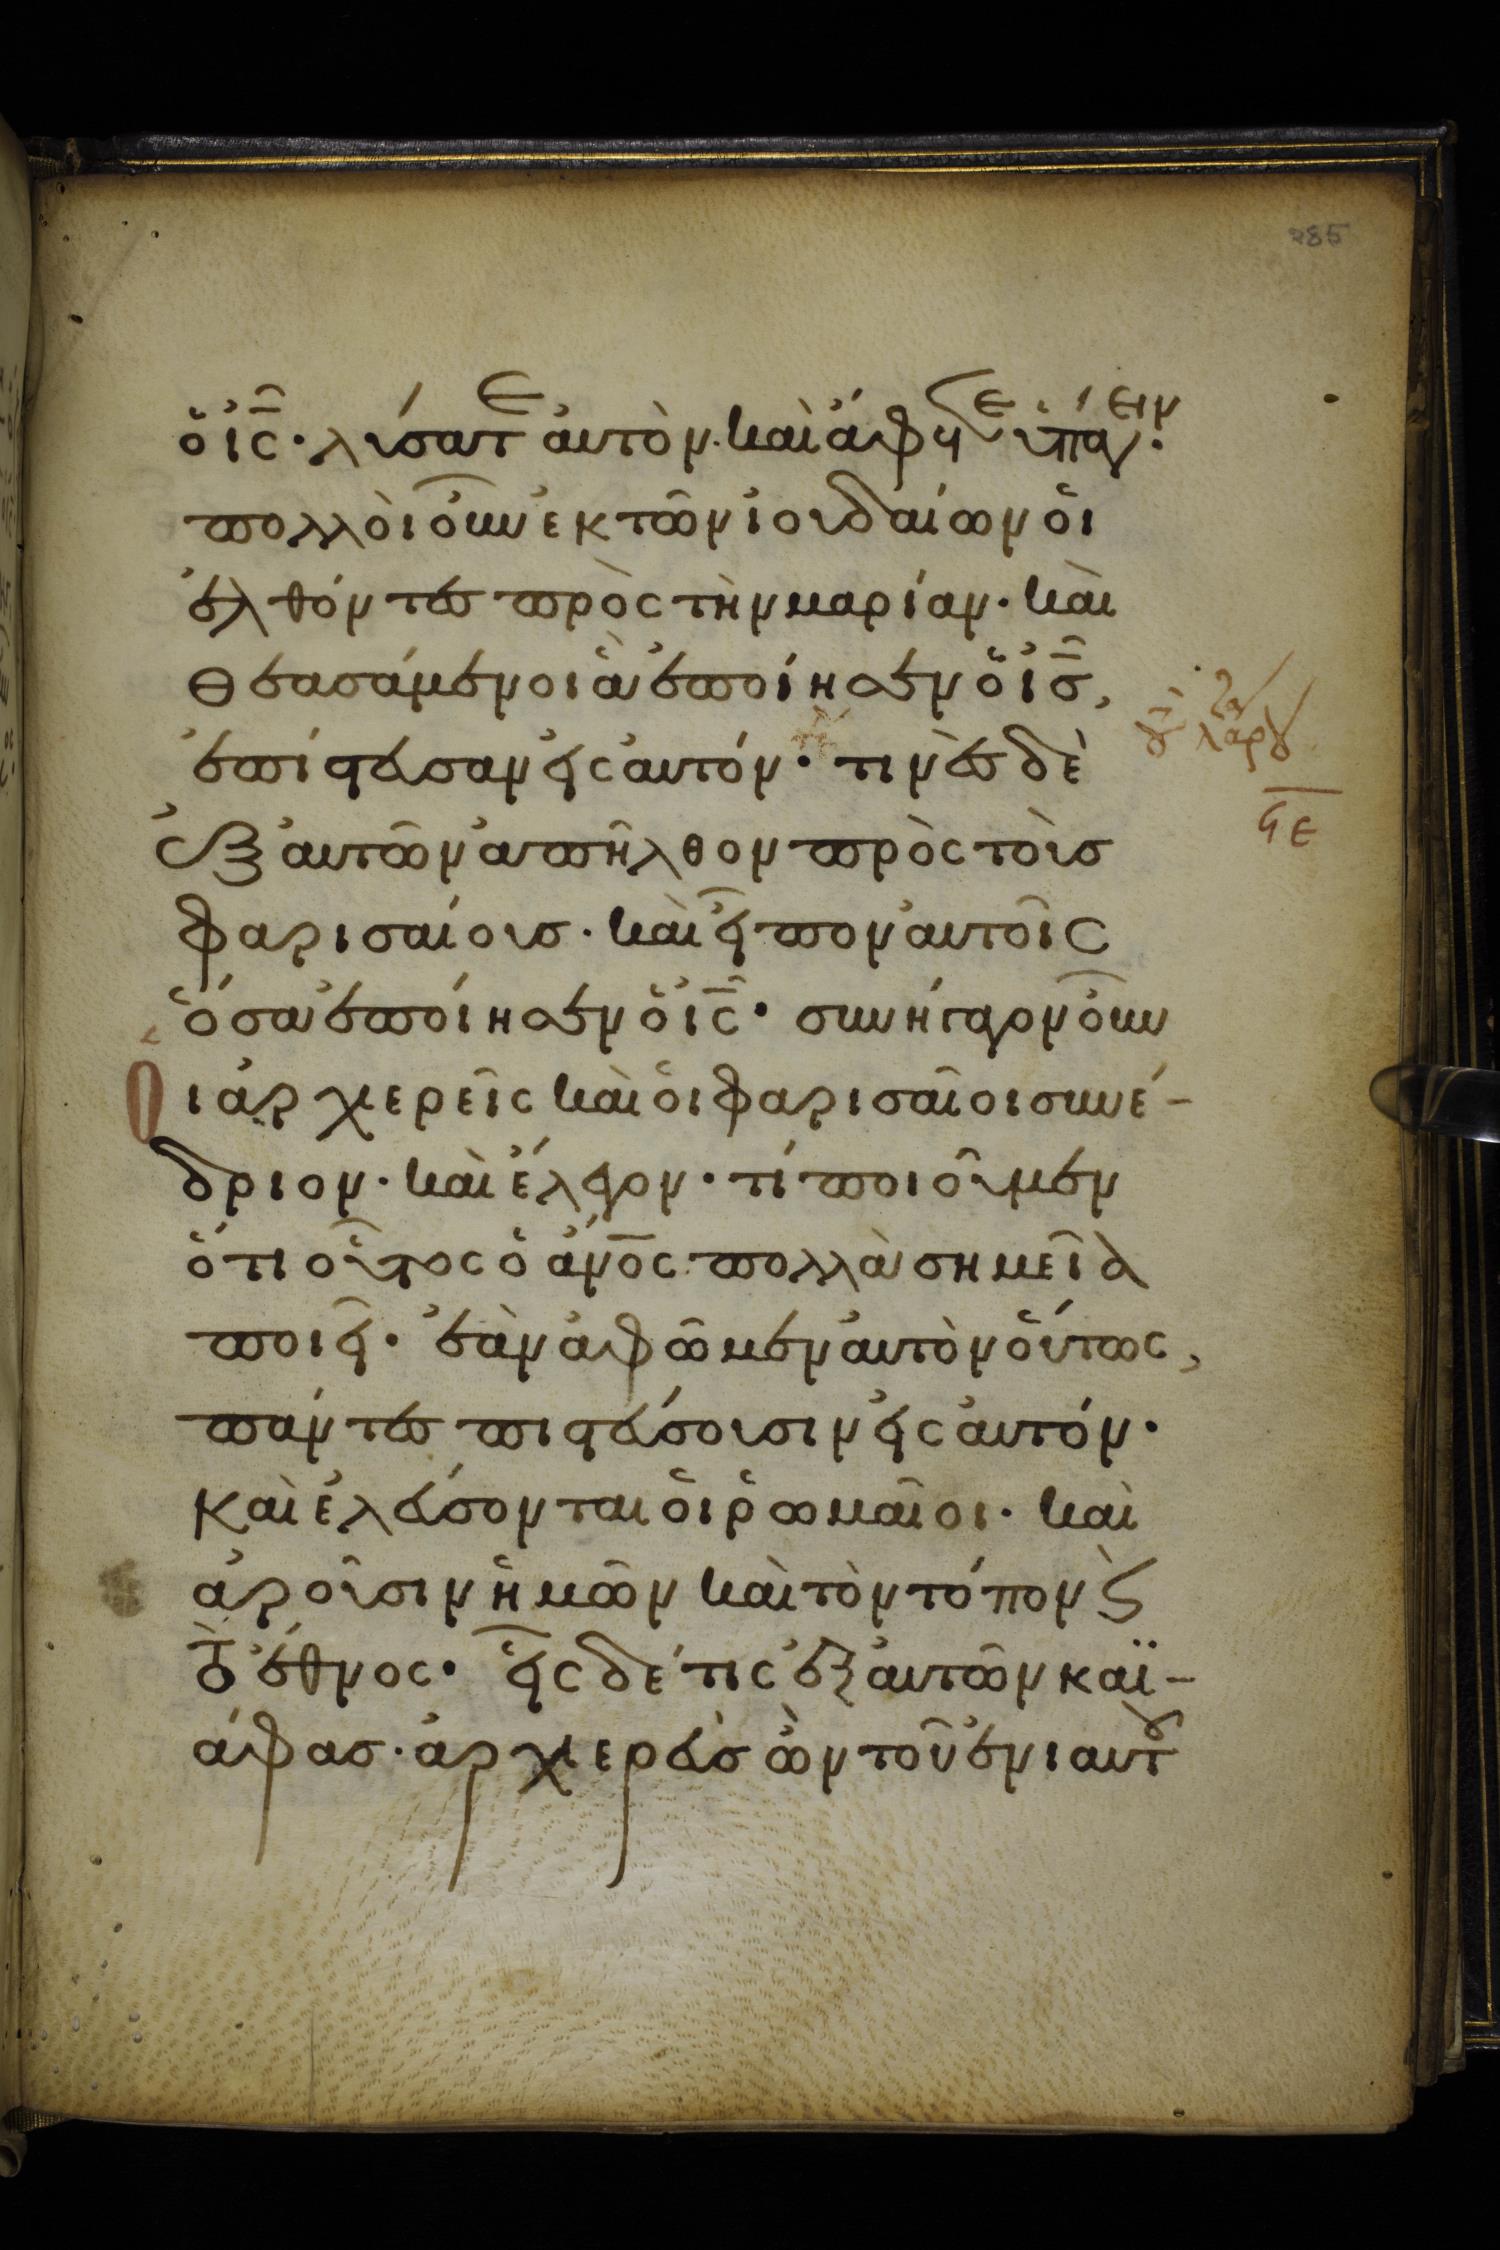 285
ὁ ἰς̅· λύσατε ἀυτὸν. καὶ ἄφετε ὑπάγειν·
πολλοὶ οὖν ἐκ τῶν ἰουδαίων ὁι
ἐλθόντες πρὸς τὴν μαρίαν· καὶ
θεασάμενοι ἃ ἐποίησεν ὁ ἰς̅,
ἐπίστευσαν εἰς ἀυτόν· τινὲς δὲ
ἐξ ἀυτῶν ἀπῆλθον πρὸς τοὺς
φαρισαίους· καὶ εἶπον ἀυτοῖς
ὅσα ἐποίησεν ὁ ἰς̅· συνήγαγον οὖν
Ὁι ἀρχιερεῖς καὶ ὁι φαρισαῖοι συνέ-
δριον· καὶ ἔλεγον· τί ποιοῦμεν
ὅτι οὗτος ὁ ἄν̅ος πολλὰ σημεῖα
ποιεῖ· ἐὰν ἀφῶμεν ἀυτὸν ὅυτως,
πάντες πιστεύσουσιν εἰς ἀυτόν·
Καὶ ἐλεύσονται ὁι ῥωμαῖοι· καὶ
ἀροῦσιν ἡμῶν καὶ τὸν τόπον ϗ
τὸ ἔθνος· εἷς δέ τις ἐξ ἀυτῶν καϊ-
άφας· ἀρχιερεὺς ὢν τοῦ ἐνιαυτοῦ